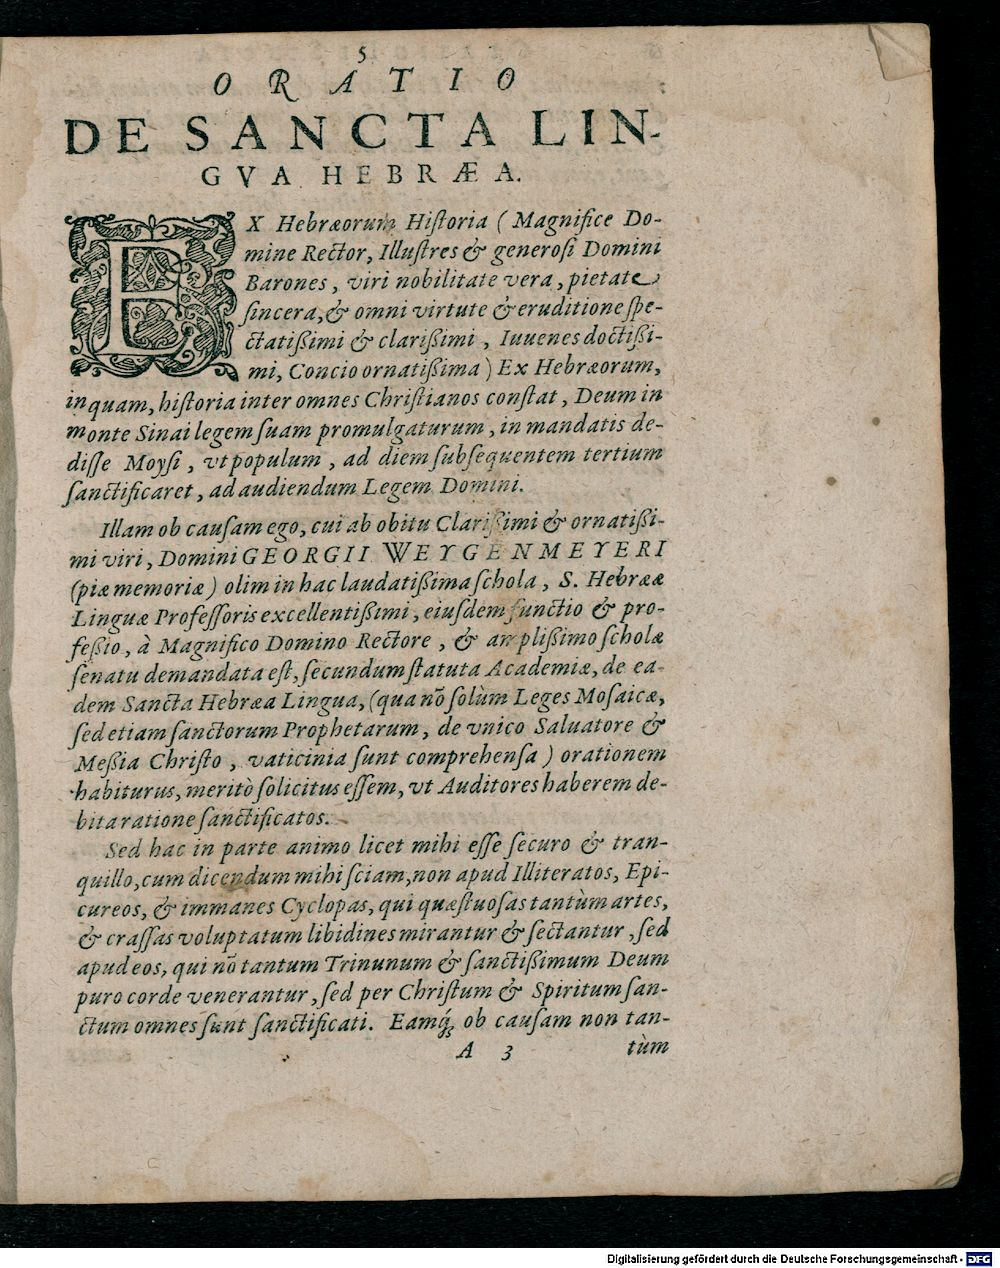 5
ORATIO
DE SANCTA LIN-
GVA HEBRÆA.
EX Hebræorum Hiſtoria (Magnifice Do-
mine Rector, Illuſtres & generoſi Domini
Barones, viri nobilitate vera, pietate
ſincera, & omni virtute & eruditione ſpe-
ctatißimi & clarißimi, Iuuenes doctißi-
mi, Concio ornatißima) Ex Hebræorum,
inquam, hiſtoria inter omnes Chriſtianos conſtat, Deum in
monte Sinai legem ſuam promulgaturum, in mandatis de-
diſſe Moyſi, vt populum, ad diem ſubſequentem tertium
ſanctificaret, ad audiendum Legem Domini.
Illam ob cauſam ego, cui ab obitu Clarißimi & ornatißi-
mi viri, Domini GEORGII WEYGENMEYERI
(piæ memoriæ) olim in hac laudatißima ſchola, S. Hebrææ
Linguæ Profeſſoris excellentißimi, eiuſdem functio & pro-
feßio, à Magnifico Domino Rectore, & amplißimo ſcholæ
ſenatu demandata eſt, ſecundum ſtatuta Academiæ, de ea-
dem Sancta Hebræa Lingua, (qua nō ſolùm Leges Moſaicæ,
ſed etiam ſanctorum Prophetarum, de vnico Saluatore &
Meßia Chriſto, vaticinia ſunt comprehenſa) orationem
habiturus, meritò ſolicitus eſſem, vt Auditores haberem de-
bita ratione ſanctificatos.
Sed hac in parte animo licet mihi eſſe ſecuro & tran-
quillo, cum dicendum mihi ſciam, non apud Illiteratos, Epi-
cureos, & immanes Cyclopas, qui quæſtuoſas tantùm artes,
& craſſas voluptatum libidines mirantur & ſectantur, ſed
apud eos, qui nō tantum Trinunum & ſanctißimum Deum
puro corde venerantur, ſed per Chriſtum & Spiritum ſan-
ctum omnes ſunt ſanctificati. Eamq́; ob cauſam non tan-
A 3 tùm
Digitalisierung gefördert durch die Deutsche Forschungsgemeinschaft - DFG